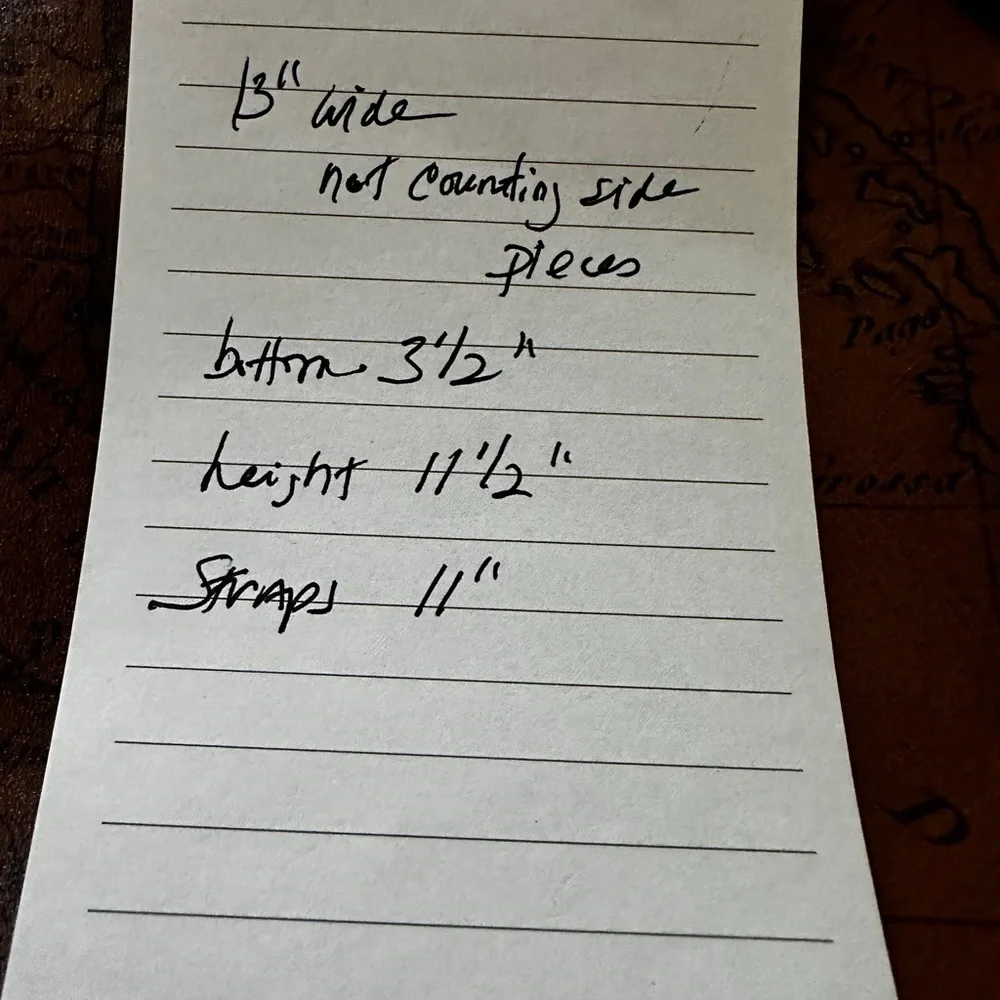 13" wide
not counting side
pieces
bottom 3 1/2"
height 11 1/2"
Straps 11"